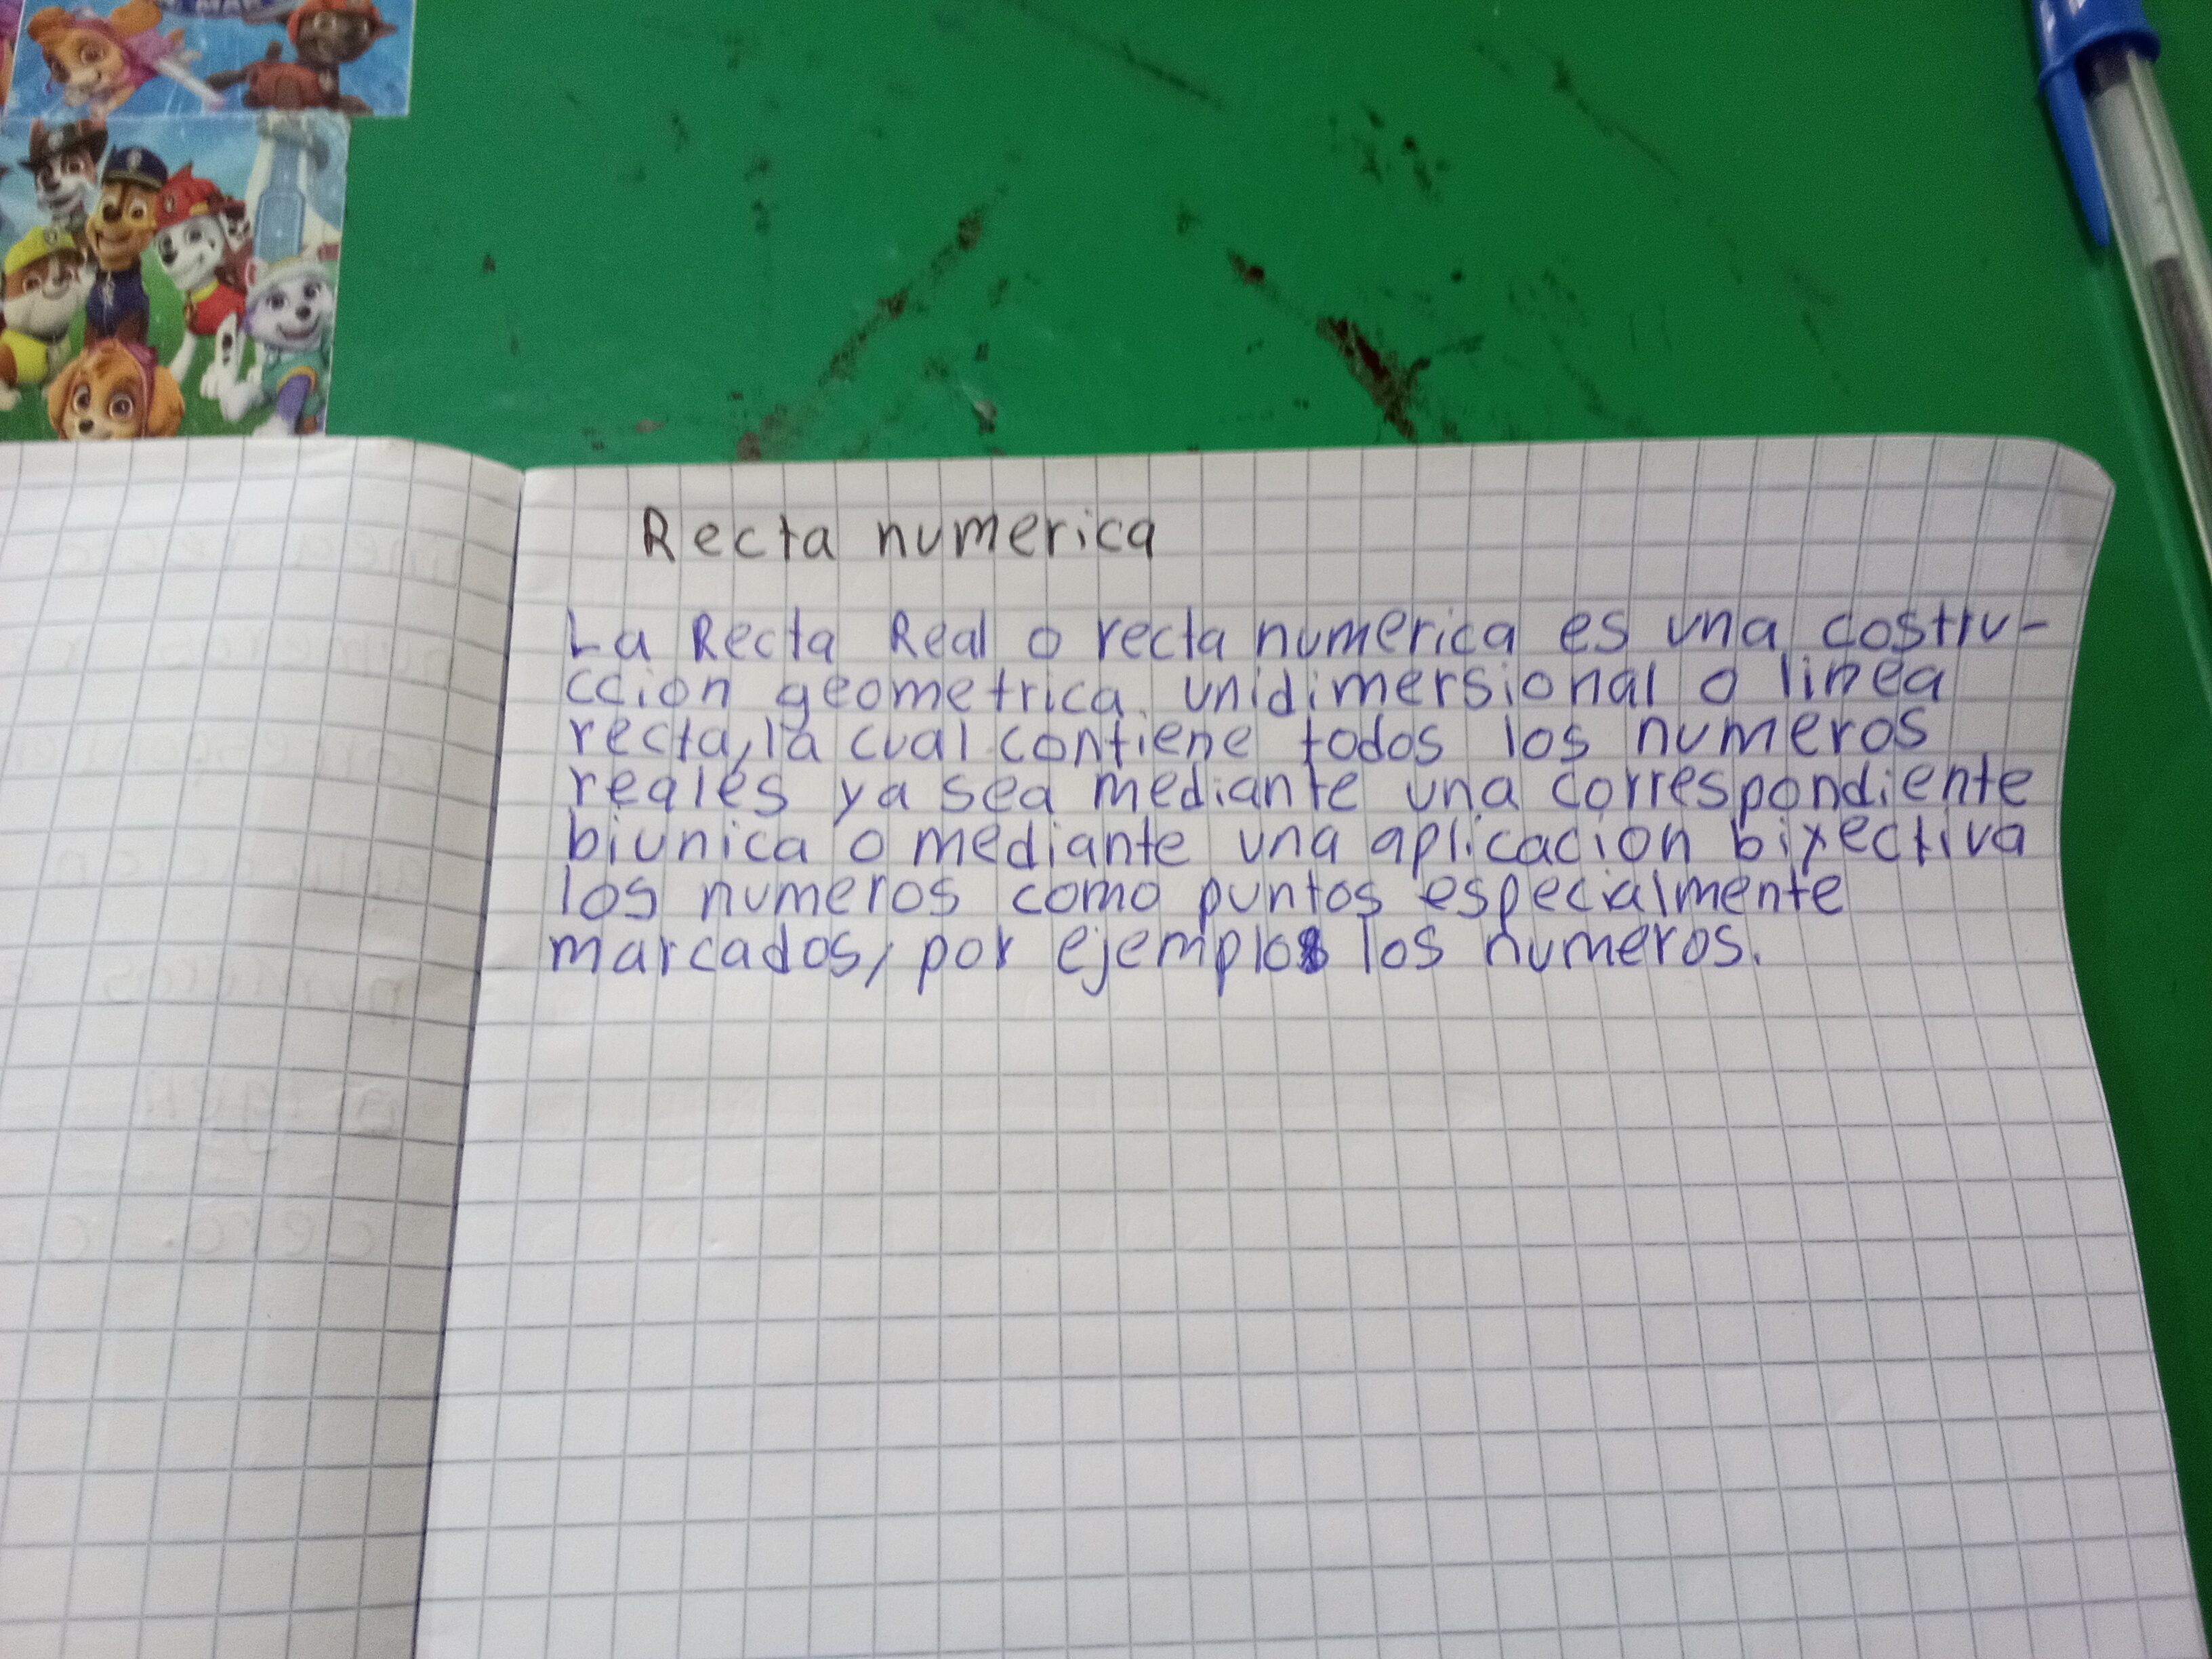 Recta numerica
La Recta Real o recta numerica es una costru-
ccion geometrica unidimersional o linea
recta, la cual contiene todos los numeros
reales ya sea mediante una correspondiente
biunica o mediante una aplicacion bixectiva
los numeros como puntos especialmente
marcados, por ejemplos los numeros.